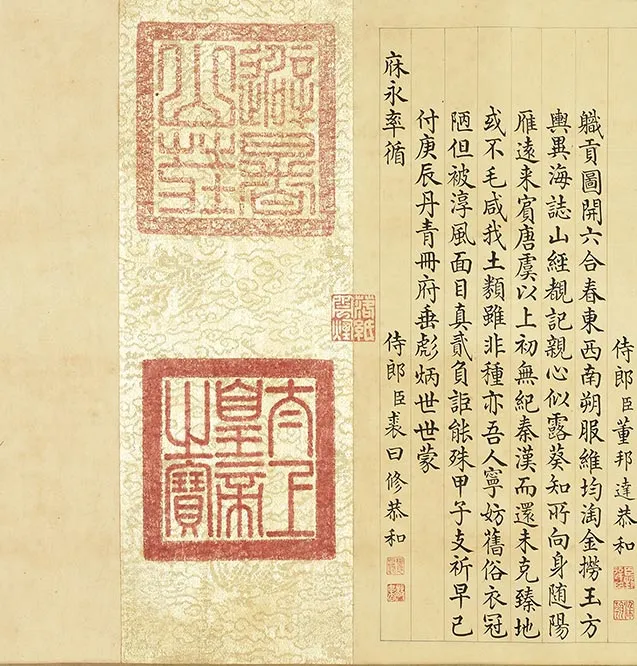 侍郎臣董邦達恭和
職貢圖開六合春東西南朔服維均淘金撈玉方
輿異海誌山經覩記親心似露葵知所向身随陽
雁遠来賓唐虞以上初無紀秦漢而還未克臻地
或不毛咸我土類雖非種亦吾人寧妨舊俗衣冠
陋但被淳風面目真貳負詎能殊甲子支祈早已
付庚辰丹青冊府垂彪炳世世蒙
庥永率循
侍郎臣裘曰修恭和
落紙雲煙
避暑山莊
太上皇帝之寶